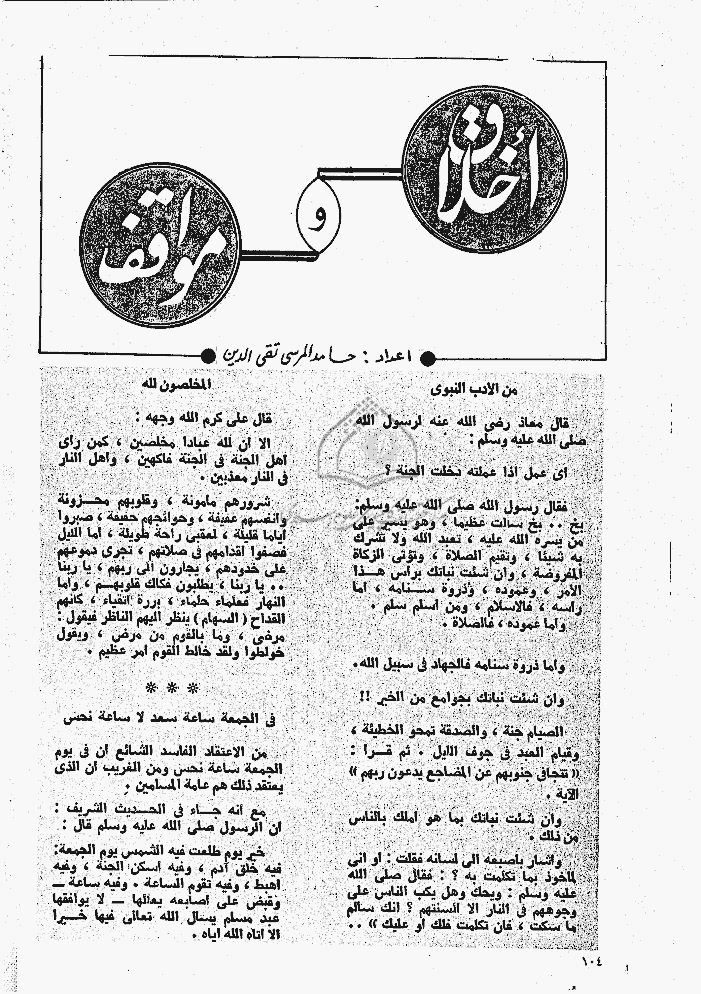 أخلاق
و
مواقف
اعداد : حامد المرسي تقي الدين
من الأدب النبوى
قال معاذ رضى الله عنه لرسول الله
صلى الله عليه وسلم :
اى عمل اذا عملته دخلت الجنة ؟
فقال رسول الله صلى الله عليه وسلم:
بخ ٠٠ بخ سألت عظيما ، وهو يسير على
من يسره الله عليه ، تعبد الله ولا تشرك
به شيئا ، وتقيم الصلاة ، وتؤتى الزكاة
المفروضة ، وان شئت نباتك براس هـــذا
الأمر ، وعموده ، وذروة سـنامه ، اما
راسه ، فالاسلام ، ومن اسلم سلم .
واما عموده ، فالصلاة .
واما ذروة سنامه فالجهاد فى سبيل الله.
وان شئت نباتك بجوامع من الخير !!
الصيام جنة ، والصدقة تمحو الخطيئة ،
وقيام العبد فى جوف الليل . ثم قـــرا :
(( تتجافى جنوبهم عن المضاجع يدعون ربهم ))
الآية .
وان شئت نباتك بما هو املك بالناس
من ذلك .
واشار باصبعه الى لسانه فقلت : او انى
لمأخوذ بما نكلمت به ؟ : فقال صلى الله
عليه وسلم : ويحك وهل يكب الناس على
وجوههم فى النار الا السنتهم ؟ انك سالم
ما سكت ، فان تكلمت فلك او عليك )) ..
المخلصون لله
قال على كرم الله وجهه :
الا ان لله عبادا مخلصين ، كمن راى
اهل الجنة فى الجنة فاكهين ، واهل النار
فى النار معذبين .
شرورهم مامونة ، وقلوبهم محــزونة
وانفسهم عفيفة ، وحوائجهم خفيفة ، صبروا
اياما قليلة ، لعقبى راحة طويلة ، اما الليل
فصفوا اقدامهم فى صلاتهم ، تجرى دموعهم
على خدودهم ، يجارون الى ربهم ، يا ربنا
.. يا ربنا ، يطلبون فكاك قلوبهـــم ، واما
النهار فعلماء حلماء ، بررة اتقياء ، كانهم
القداح ( السهام ) ينظر اليهم الناظر فيقول :
مرضى ، وما بالقوم من مرض ، ويقول
خولطوا ولقد خالط القوم امر عظيم .
* * *
فى الجمعة ساعة سعد لا ساعة نحس
من الاعتقاد الفاسد الشائع ان فى يوم
الجمعة ساعة نحس ومن الغريب ان الذى
يعتقد ذلك هم عامة المسلمين .
مع انه جـــاء فى الحــديث الشريف :
ان الرسول صلى الله عليه وسلم قال :
خير يوم طلعت فيه الشمس يوم الجمعة:
فيه خلق آدم ، وفيه اسكن الجنة ، وفيه
اهبط ، وفيه تقوم الساعة . وفيه ساعة ـ
وقبض على اصابعه يقللها ـ لا يوافقها
عبد مسلم يسال الله تعالى فيها خـــيرا
الا اتاه الله اياه .
١٠٤